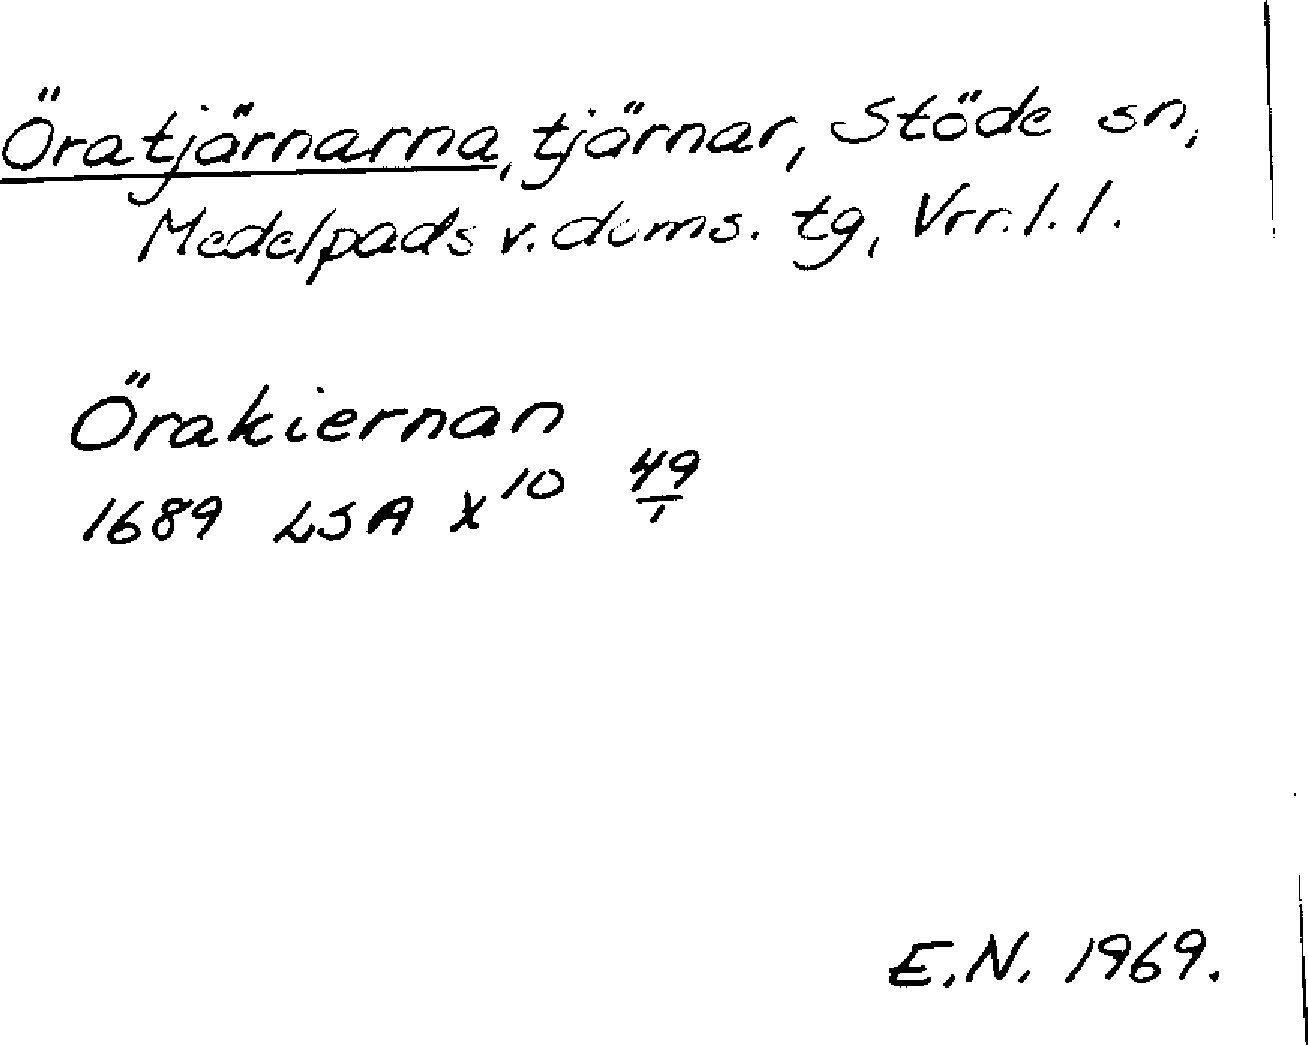 Öratjärnarna, tjärnar, Stöde sn,
Medelpads v. doms. tg, Vrr. l. l.
Örakiernan
1689 LSA X¹⁰ 49/1
E.N. 1969.